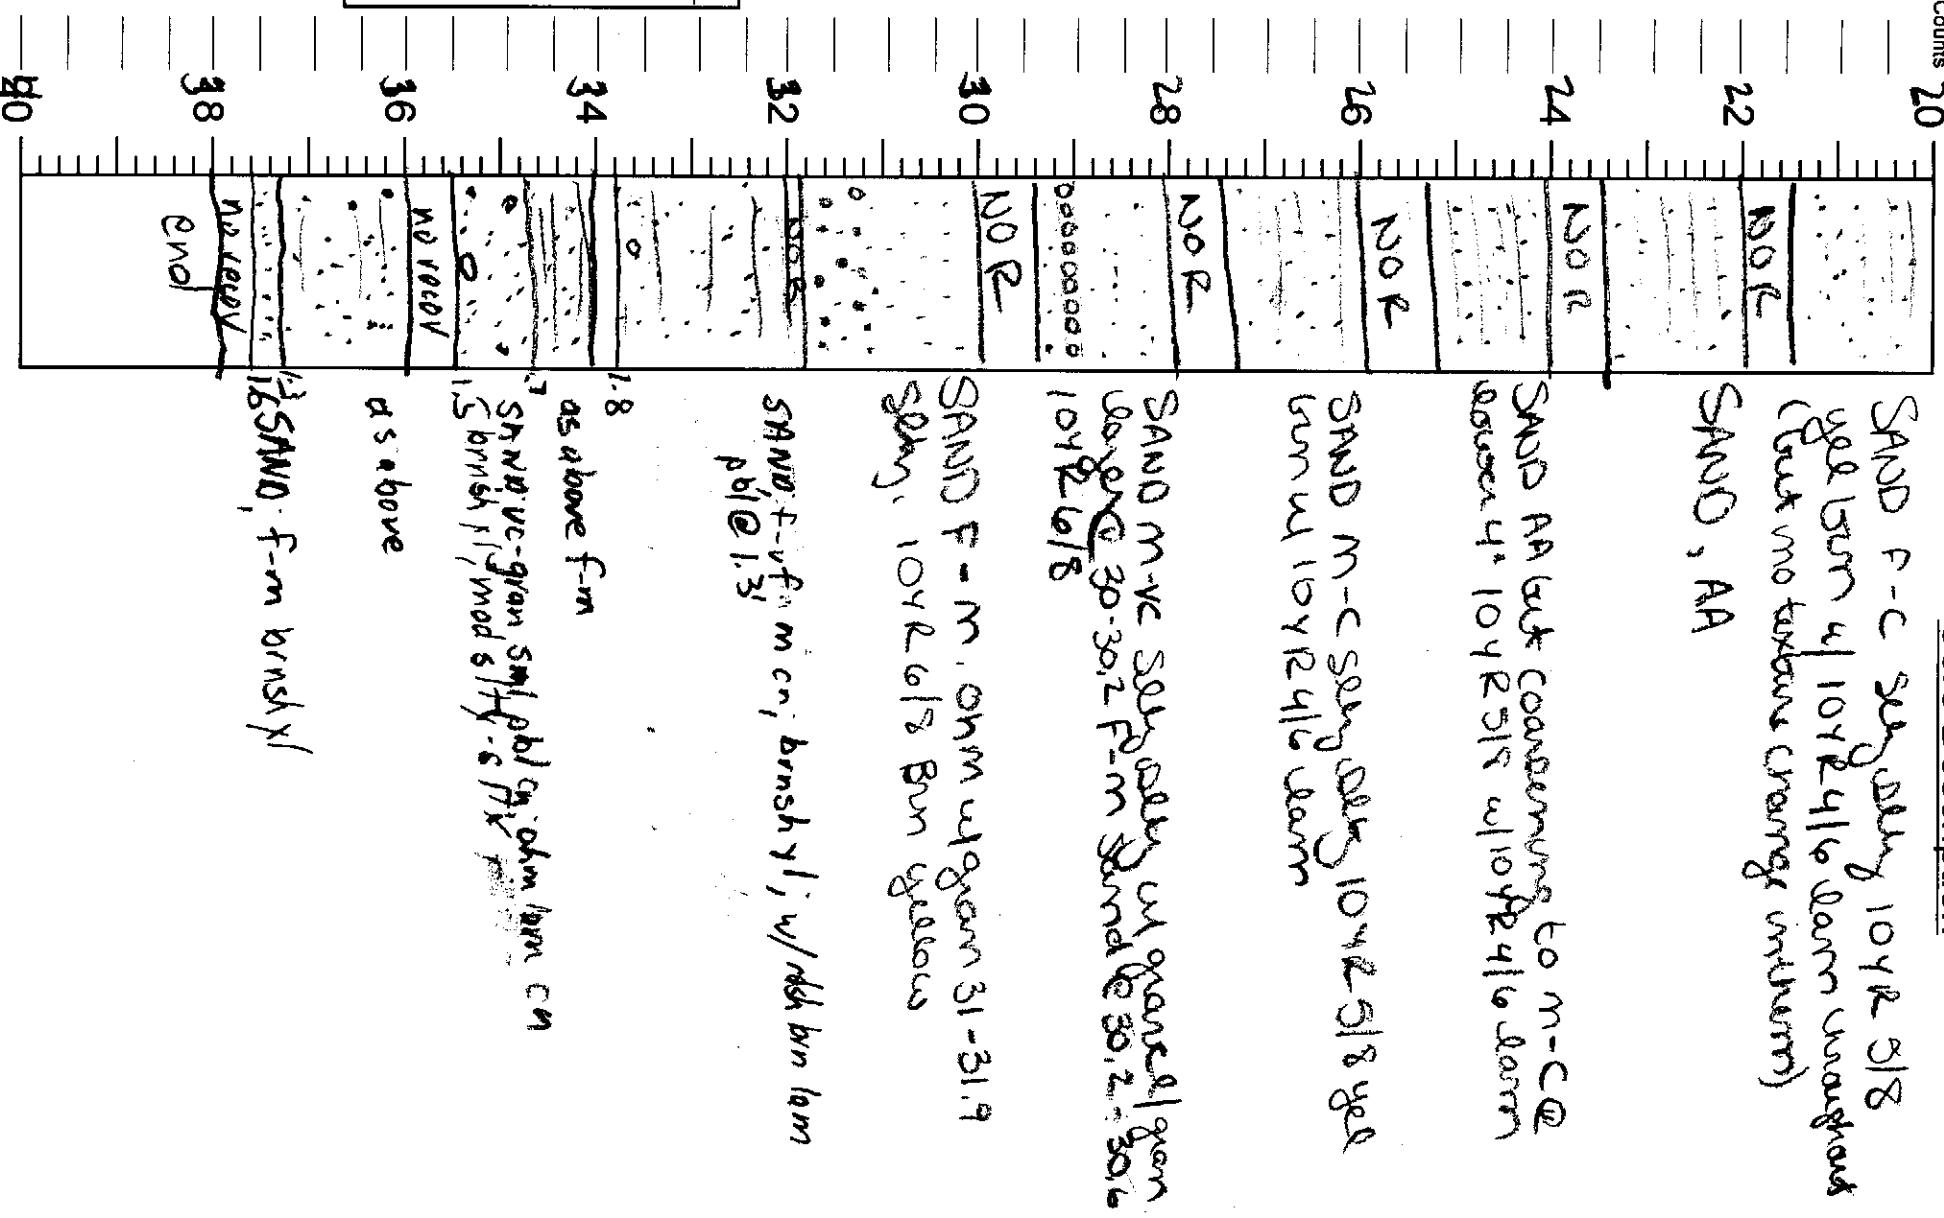 Counts
20
SAND F-C Slty 10YR 5/8
yel brn w/ 10YR4/6 lam throughout
(but no texture change in them)
NO R
22
SAND, AA
NO R
24
SAND AA but coarsening to m-c @
lower 4" 10YR5/8 w/10YR4/6 lam
NO R
26
SAND m-c Slty 10YR 5/8 yel
brn w/ 10YR4/6 lam
NO R
28
SAND m-vc w/ gravel/gran
layer @ 30-30.2 F-m sand @ 30.2-30.6
10YR6/8
NO R
30
SAND F-m. ohm w/gran 31-31.9
10YR6/8 Brn yellow
NO R
32
SAND, f-vf, m cn, brnsh yl, w/ rdsh brn lam
pbl @ 1.3'
1.8
34
as above f-m
.7
SAND vc-gran, sml pbl cn ohm brn cn
brnsh yl, mod slty-slty
1.5
no recov
36
as above
1.3
SAND, f-m brnsh yl
1.6
no recov
38
end
40